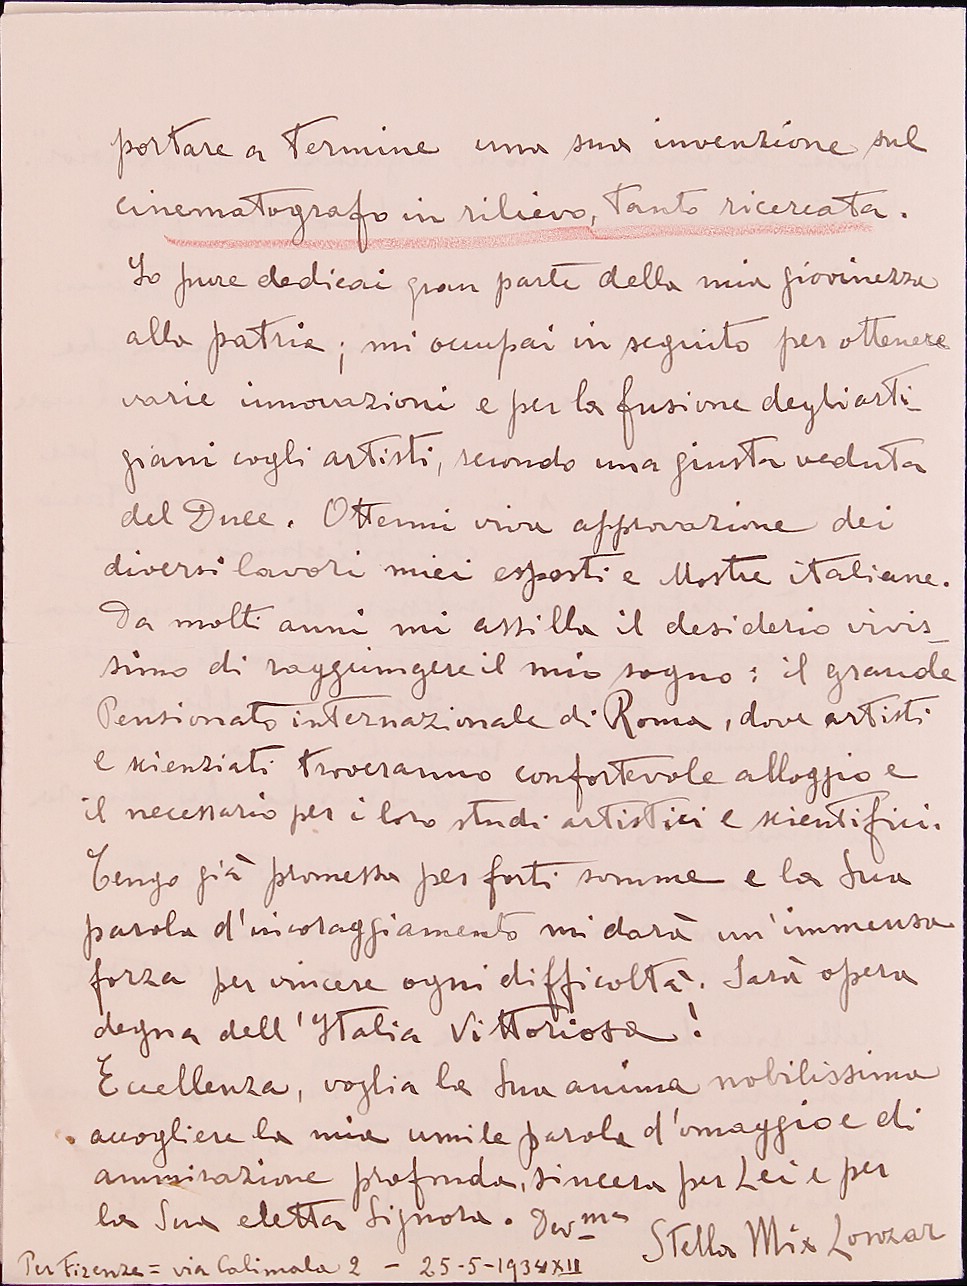 portare a termine una sua invenzione sul
cinematografo in rilievo, tanto ricercata.
Io pure dedicai gran parte della mia giovinezza
alla patria; mi occupai in seguito per ottenere
varie innovazioni e per la fusione degli arti_
giani cogli artisti, secondo una giusta veduta
del Duce. Ottenni viva approvazione dei
diversi lavori miei esposti e Mostre italiane.
Da molti anni mi assilla il desiderio vivis_
simo di raggiungere il mio sogno: il grande
Pensionato internazionale di Roma, dove artisti
e scienziati troveranno confortevole alloggio e
il necessario per i loro studi artistici e scientifici.
Tengo già promessa per forti somme e la Sua
parola d'incoraggiamento mi darà un'immensa
forza per vincere ogni difficoltà. Sarà opera
degna dell'Italia Vittoriosa!
Eccellenza, voglia la Sua anima nobilissima
accogliere la mia umile parola d'omaggio e di
ammirazione profonda, sincera per Lei e per
la Sua eletta Signora. Dev.ma
Stella Mix
Per Firenze = via Calimala 2 - 25-5-1934 XII